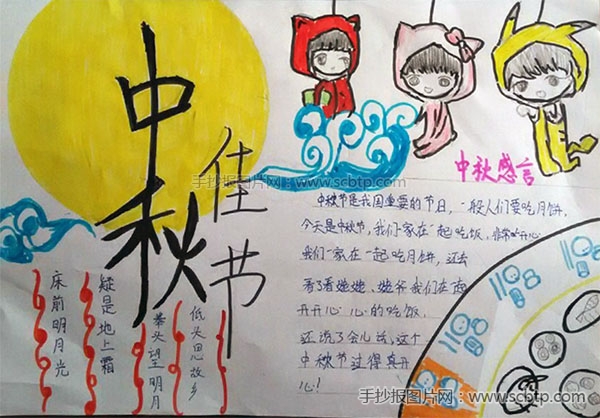 中秋
佳节
床前明月光
疑是地上霜
举头望明月
低头思故乡
中秋感言
中秋节是我国重要的节日，一般人们要吃月饼，
今天是中秋节，我们一家在一起吃饭，非常开心
我们一家在一起吃月饼，还去
看了看姥姥、姥爷我们在
开开心心的吃饭.
还说了会儿话，这个
中秋节过得真开
心！
手抄报图片网：www.scbtp.com
手抄报图片网：www.scbtp.com